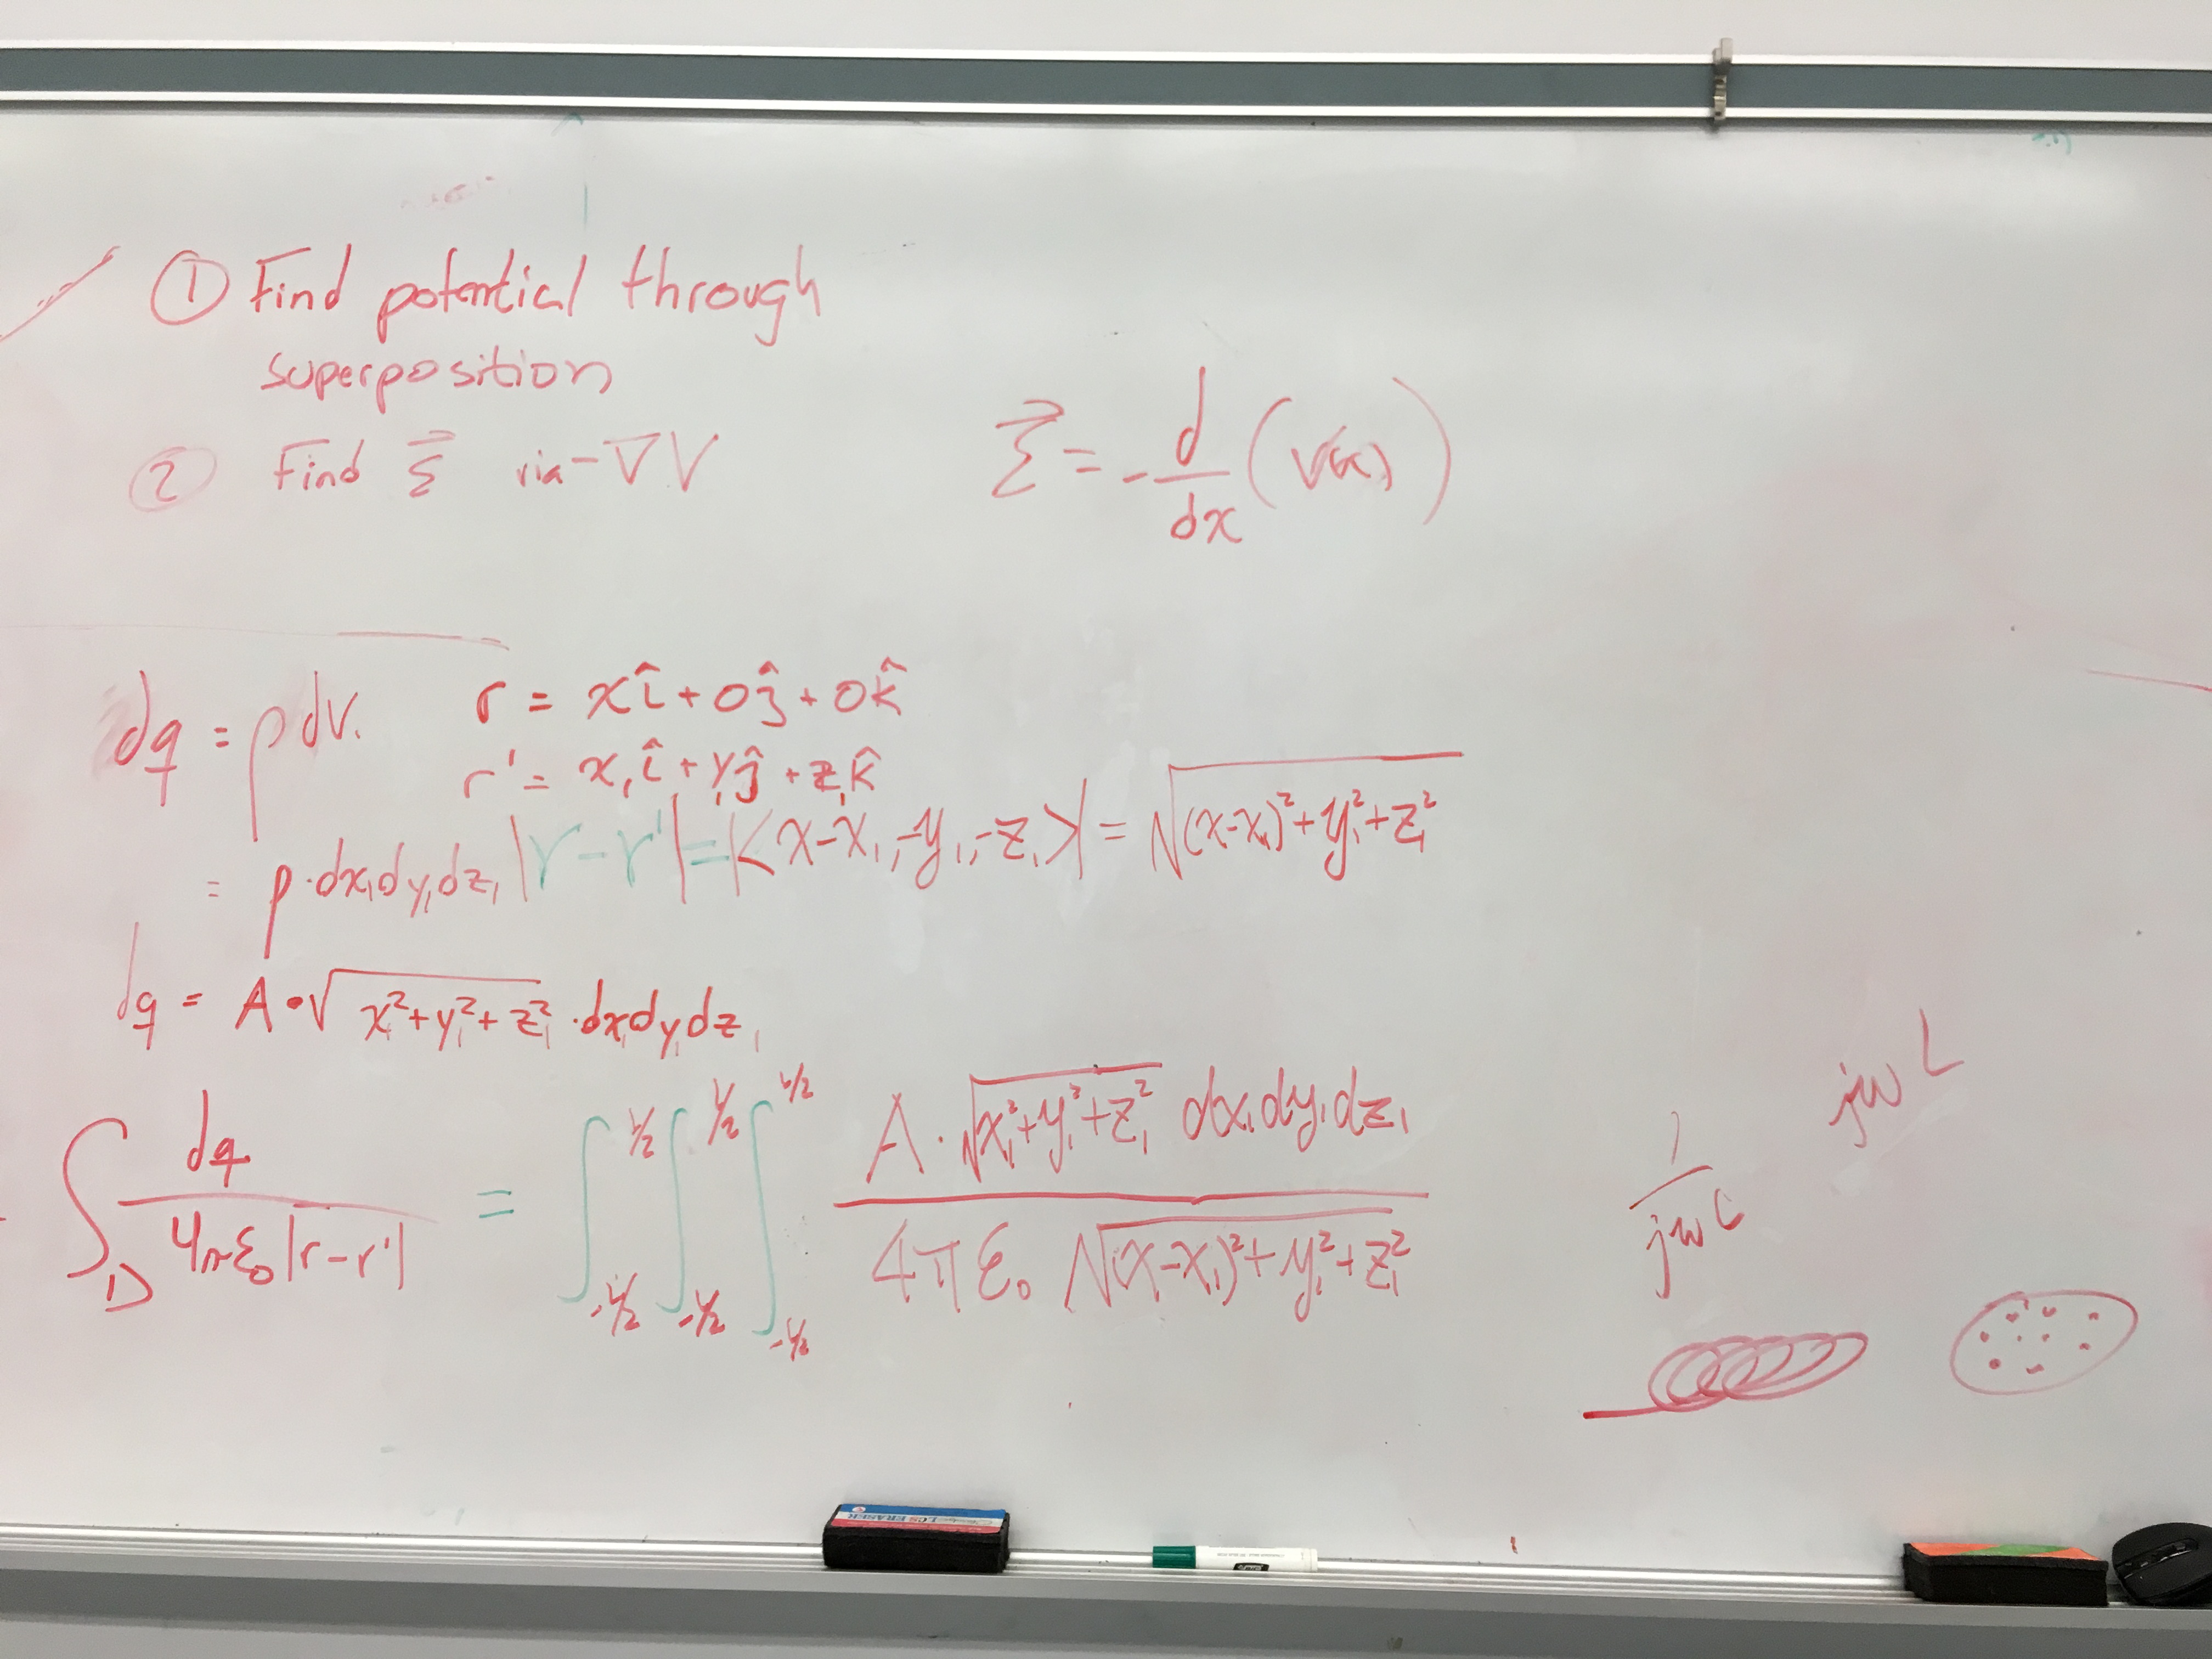 ① Find potential through
superposition
② Find ξ⃗ via -∇V
ξ⃗ = -d/dx (V(x))
dq = ρ dV.
r = xî + 0ĵ + 0k̂
r' = x₁î + y₁ĵ + z₁k̂
= ρ·dx₁dy₁dz₁
|r-r'| = |<x-x₁, -y₁, -z₁>| = √((x-x₁)²+y₁²+z₁²)
dq = A·√(x₁²+y₁²+z₁²)·dx₁dy₁dz₁
∫_D dq/(4πε₀|r-r'|) = ∫_{-L/2}^{L/2} ∫_{-L/2}^{L/2} ∫_{-L/2}^{L/2} A·√(x₁²+y₁²+z₁²) dx₁dy₁dz₁ / (4πε₀ √((x-x₁)²+y₁²+z₁²))
jωL
1/jωC
ERASER